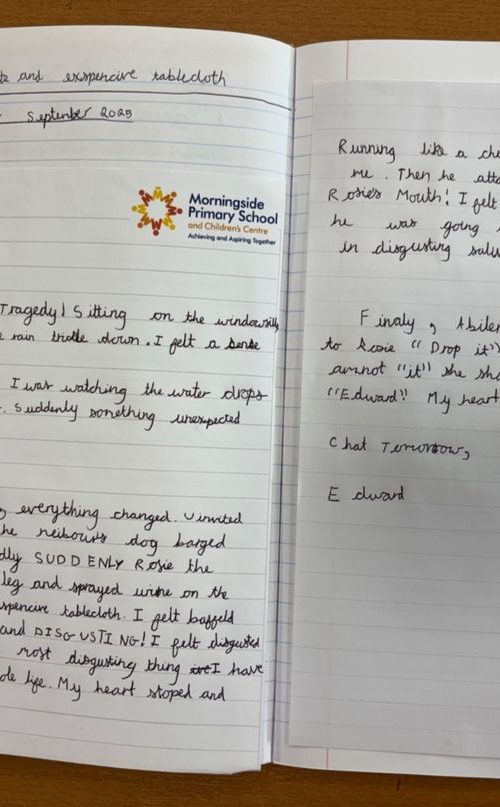 and exspencive tablecloth
September 2025
Morningside
Primary School
and Children's Centre
Achieving and Aspiring Together
Tragedy! Sitting on the windowsill,
rain trickle down. I felt a sense
I was watching the water drops
. Suddenly somthing unexpected
, everything changed. Uinvited
he neibours dog barged
dly SUDDENLY Rosie the
leg and sprayed urine on the
spencive tablecloth. I felt baffeld
and DISGUSTING! I felt disgusted
most disgusting thing I have
ole life. My heart stoped and
Running like a che
me. Then he atta
Rosie's Mouth! I felt
he was going
in disgusting saliv
Finaly, Abilen
to Rosie "Drop it"
amnot "it" she sh
"Edward!" My heart
Chat Tomorrow,
Edward